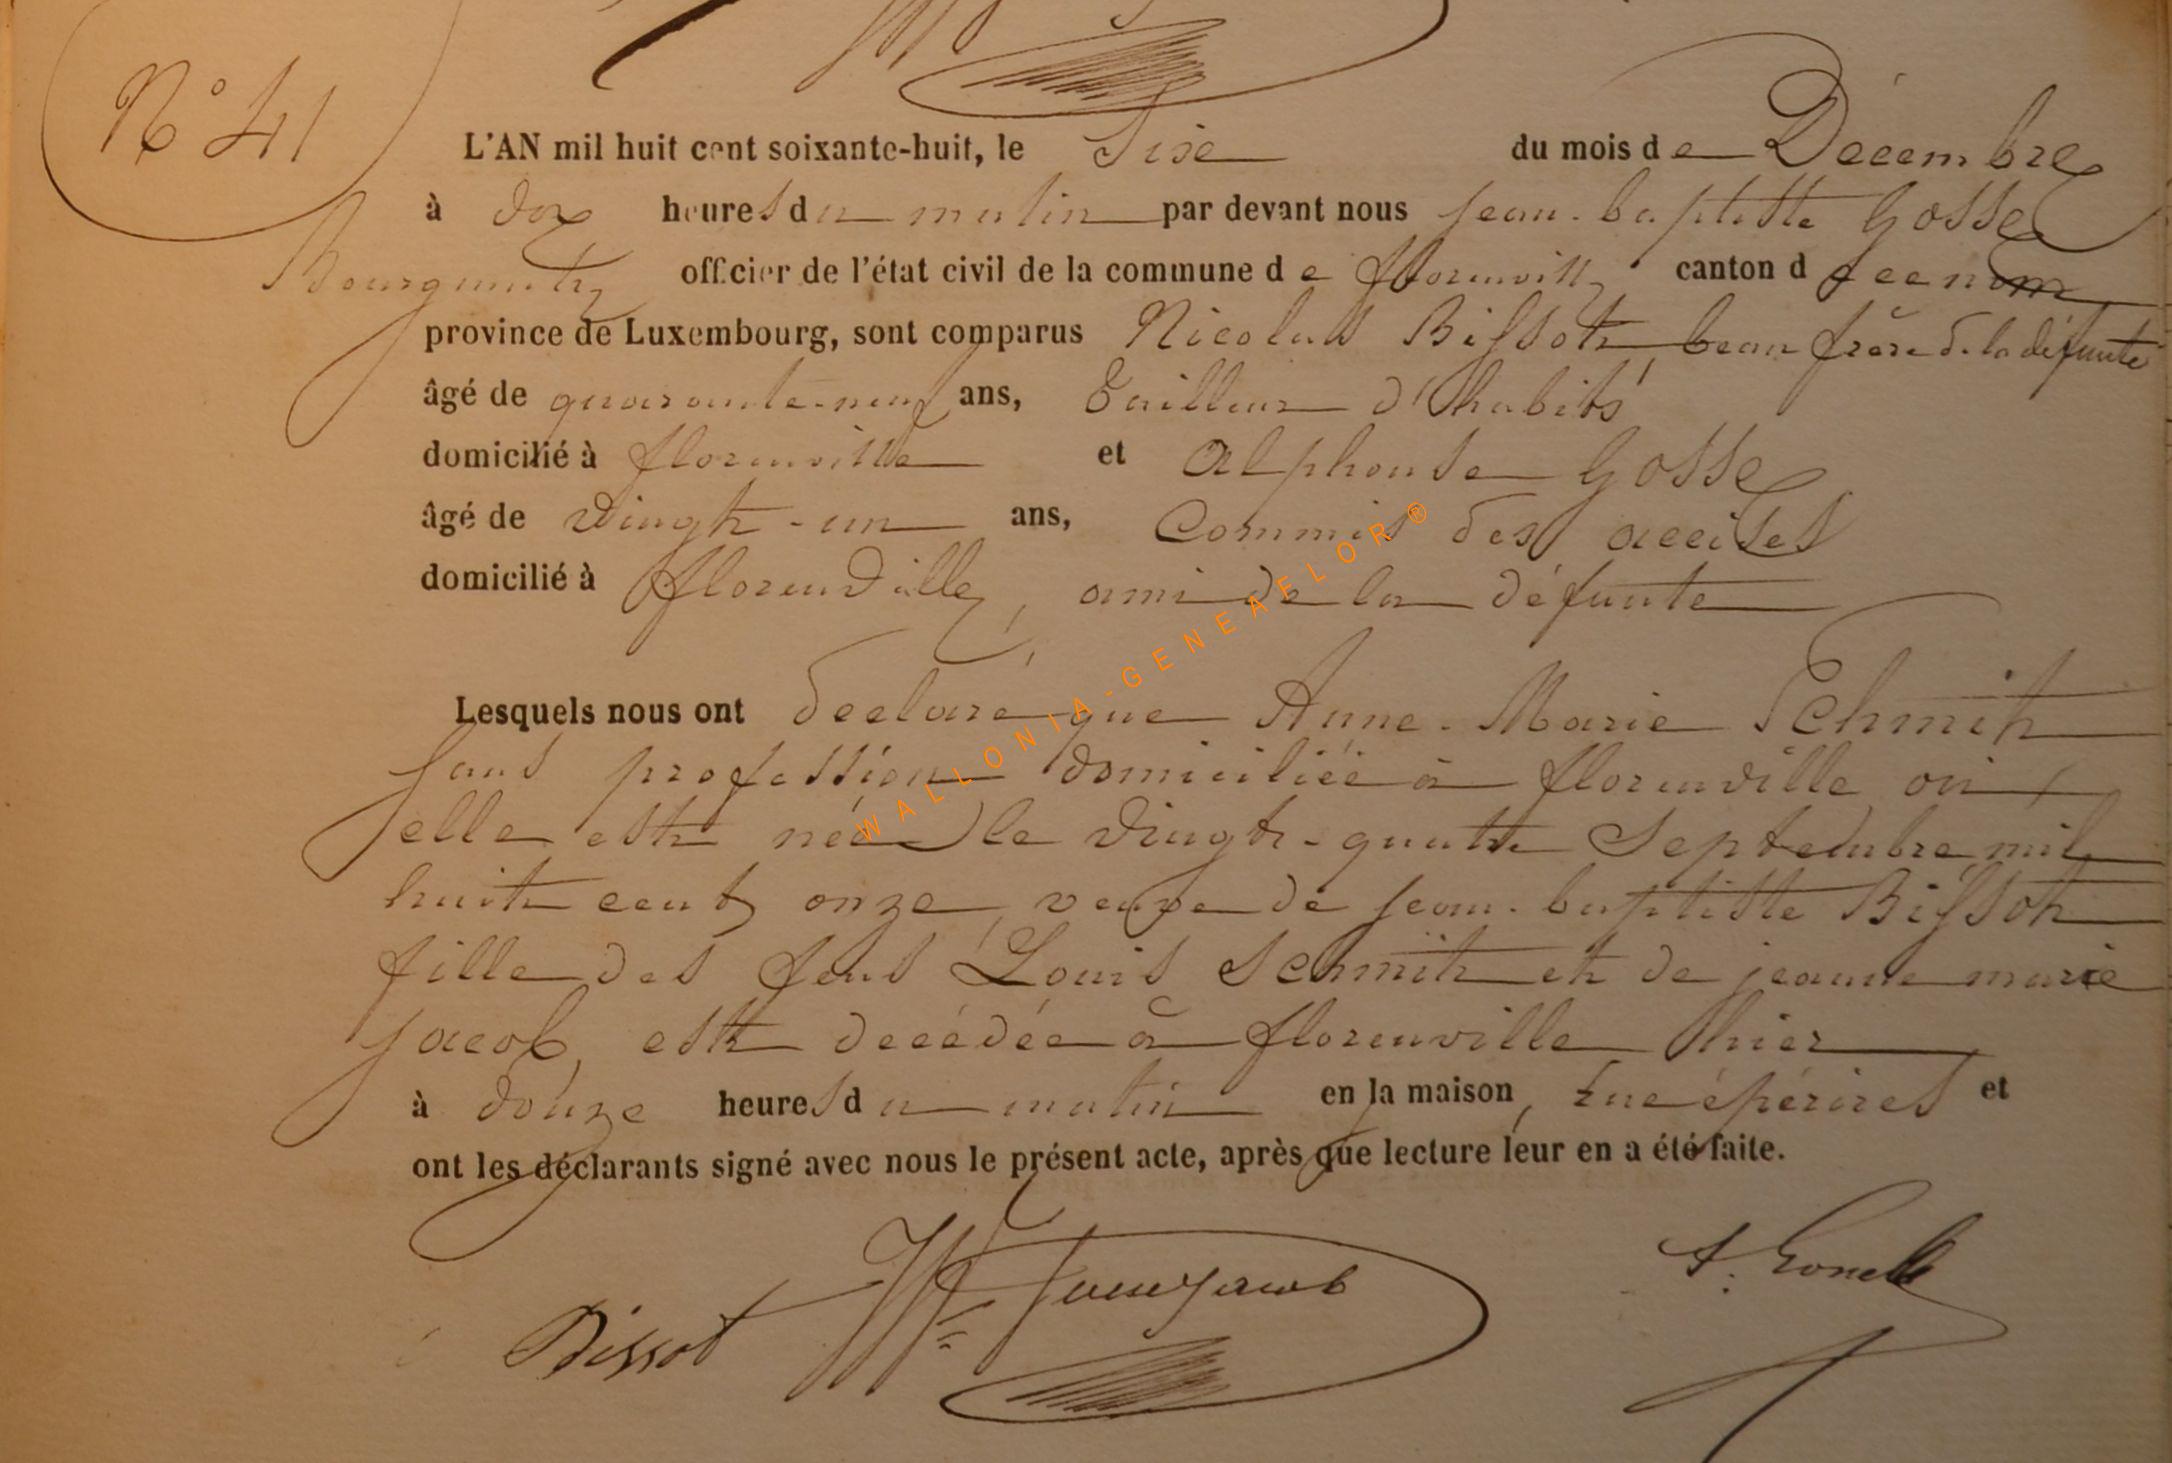 N° 41
L'AN mil huit cent soixante-huit, le Sixe du mois de Décembre
à dix heures du matin par devant nous Jean-baptiste Gosse
Bourgmestre officier de l'état civil de la commune de florenville canton d
province de Luxembourg, sont comparus Nicolas Bissot, beau frère de la défunte
âgé de quarante-neuf ans, Tailleur d'habits
domicilié à florenville et Alphonse Gosse
âgé de vingt-un ans, Commis des accises
domicilié à florenville, ami de la défunte
Lesquels nous ont déclaré que Anne-Marie Schmit
sans profession domiciliée à florenville où
elle est née le vingt-quatre Septembre mil
huit cent onze, veuve de jean-baptiste Bissot
fille des feus Louis Schmit et de jeanne marie
jacob, est decédée à florenville hier
à douze heures du matin en la maison, rue épérires et
ont les déclarants signé avec nous le présent acte, après que lecture leur en a été faite.
Bissot
WALLONIA-GENEAELOR®